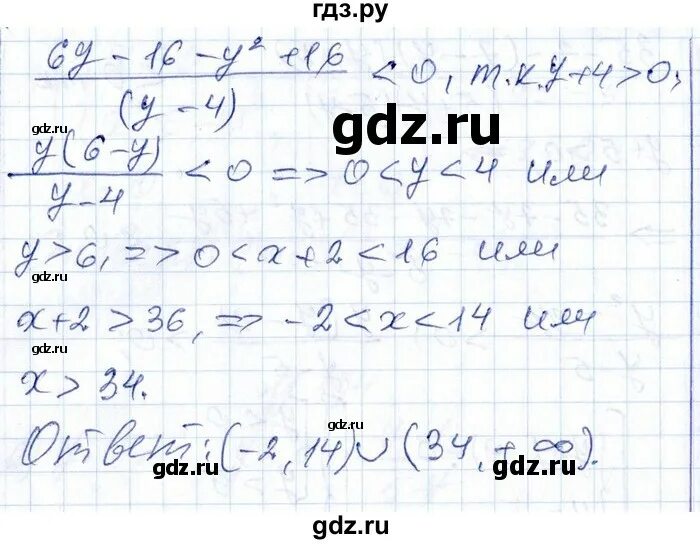 гдз.ру
(6y - 16 - y² + 16)/(y - 4) < 0, т.к. y+4>0,
gdz.ru
gdz.ru
y(6-y)/(y-4) < 0 => 0<y<4 или
gdz.ru
y>6, => 0<x+2<16 или
gdz.ru
gdz.ru
x+2>36, => -2<x<14 или
gdz.ru
gdz.ru
x>34.
Ответ: (-2, 14)∪(34, +∞).
gdz.ru
gdz.ru
gdz.ru